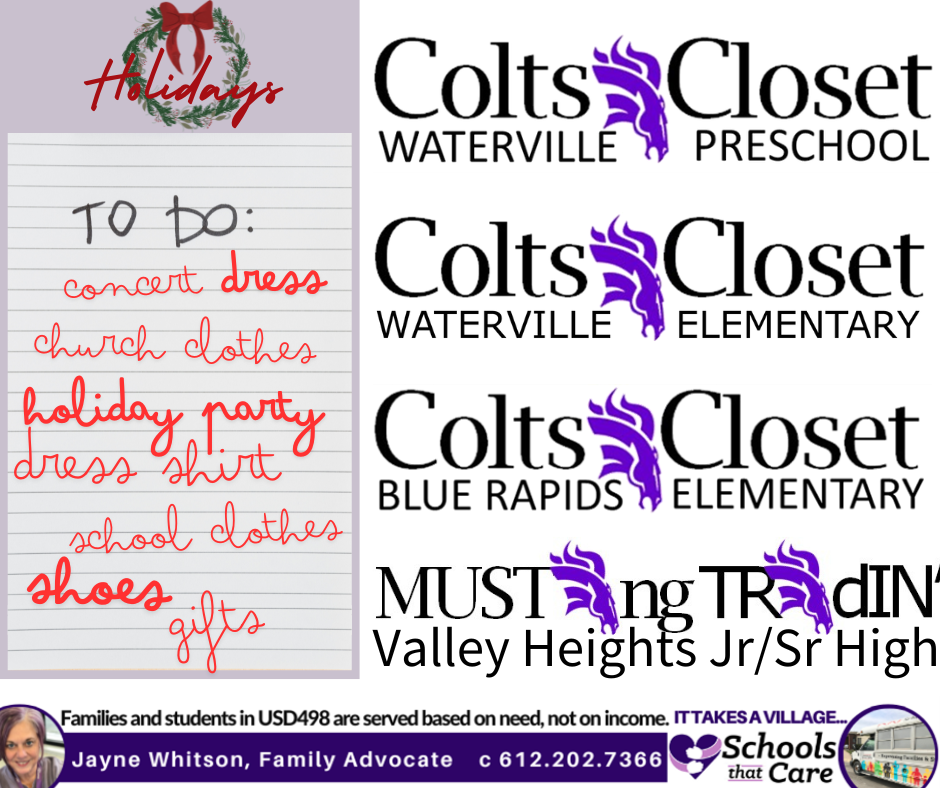 Holidays
TO DO:
concert dress
church clothes
holiday party
dress shirt
school clothes
shoes
gifts
Colts Closet
WATERVILLE PRESCHOOL
Colts Closet
WATERVILLE ELEMENTARY
Colts Closet
BLUE RAPIDS ELEMENTARY
MUST ng TR dIN'
Valley Heights Jr/Sr High
Families and students in USD498 are served based on need, not on income. IT TAKES A VILLAGE...
Jayne Whitson, Family Advocate c 612.202.7366
Schools
that Care